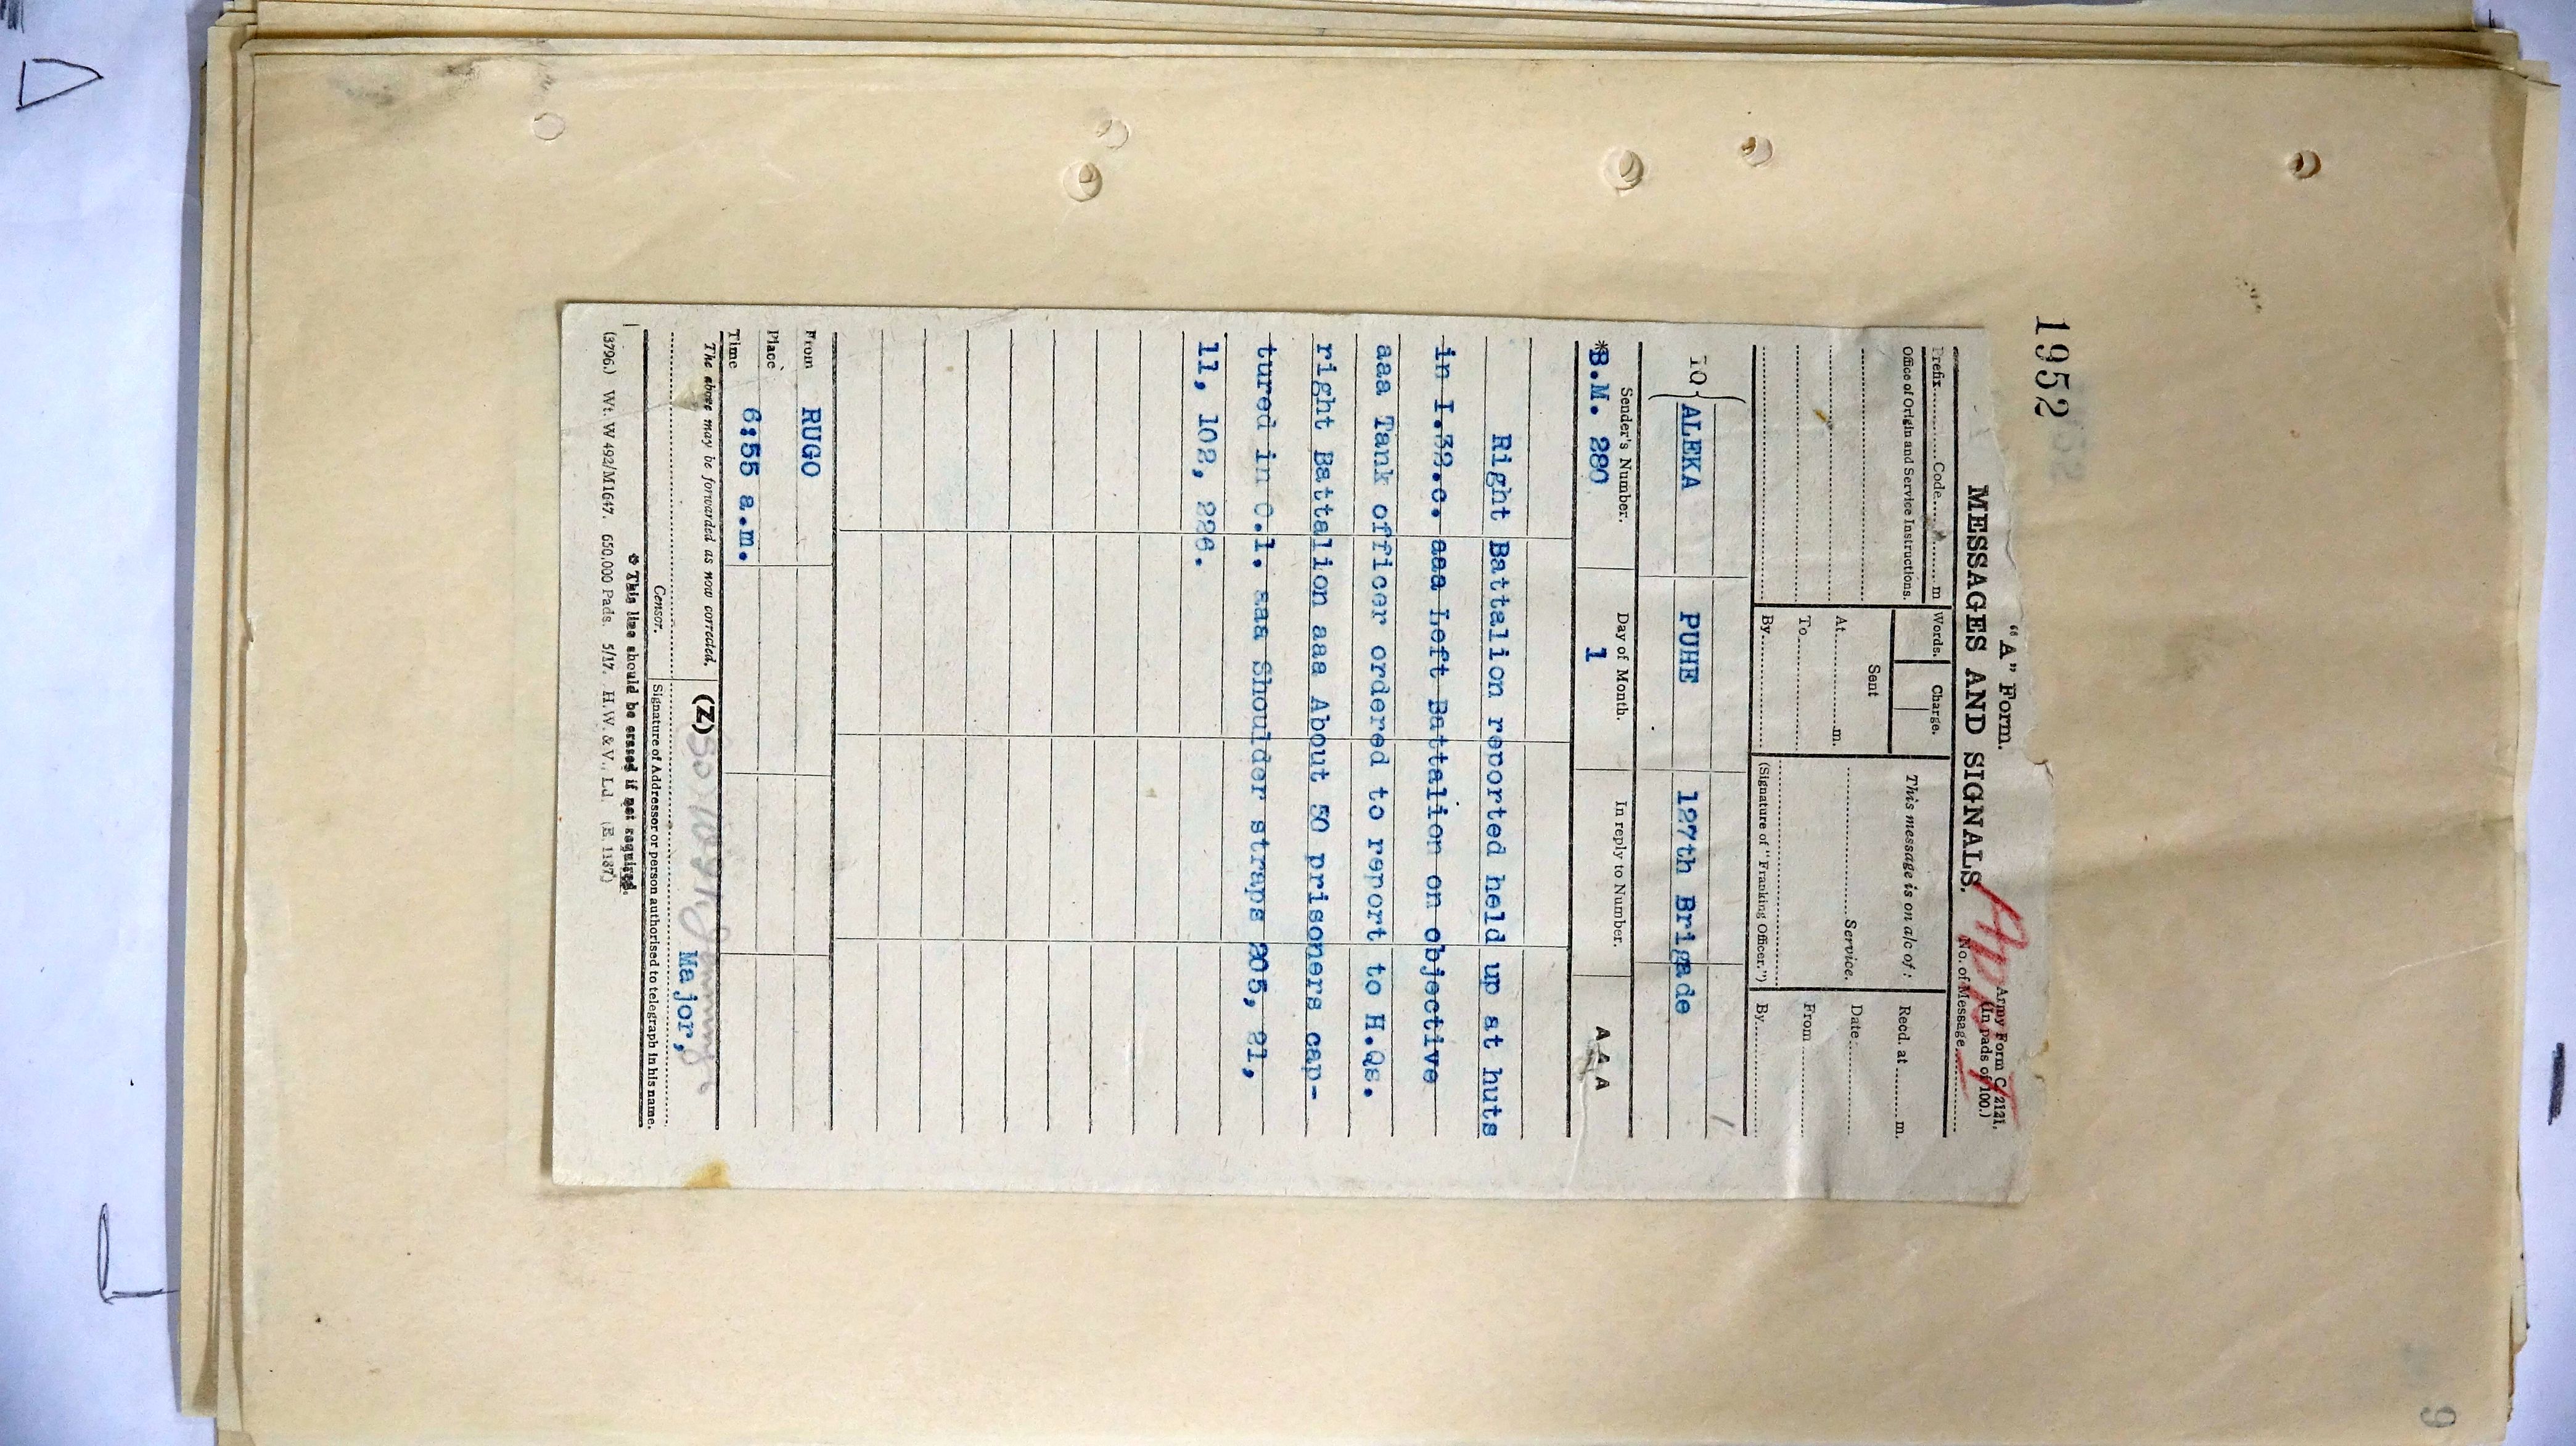 1952
"A" Form.
Army Form C. 2121.
(In pads of 100.)
MESSAGES AND SIGNALS.
No. of Message
App
Prefix Code m
Words. Charge.
This message is on a/c of :
Recd. at m.
Office of Origin and Service Instructions.
Sent
At m.
Service.
Date
To
From
By
(Signature of "Franking Officer.")
By
TO { ALEKA PUHE 127th Brigade
Sender's Number. Day of Month. In reply to Number.
*B.M. 280 1 AAA
Right Battalion reported held up at huts
in I.32.c. aaa Left Battalion on objective
aaa Tank officer ordered to report to H.Qs.
right Battalion aaa About 50 prisoners cap-
tured in O.1. aaa Shoulder straps 205, 21,
11, 102, 226.
From RUGO
Place
Time 6:55 a.m.
The above may be forwarded as now corrected. (Z)
Major,
Censor. Signature of Addressor or person authorised to telegraph in his name.
* This line should be erased if not required.
(3796.) Wt. W 492/M1647. 650,000 Pads. 5/17. H.W.&V., Ld. (E. 1187.)
9